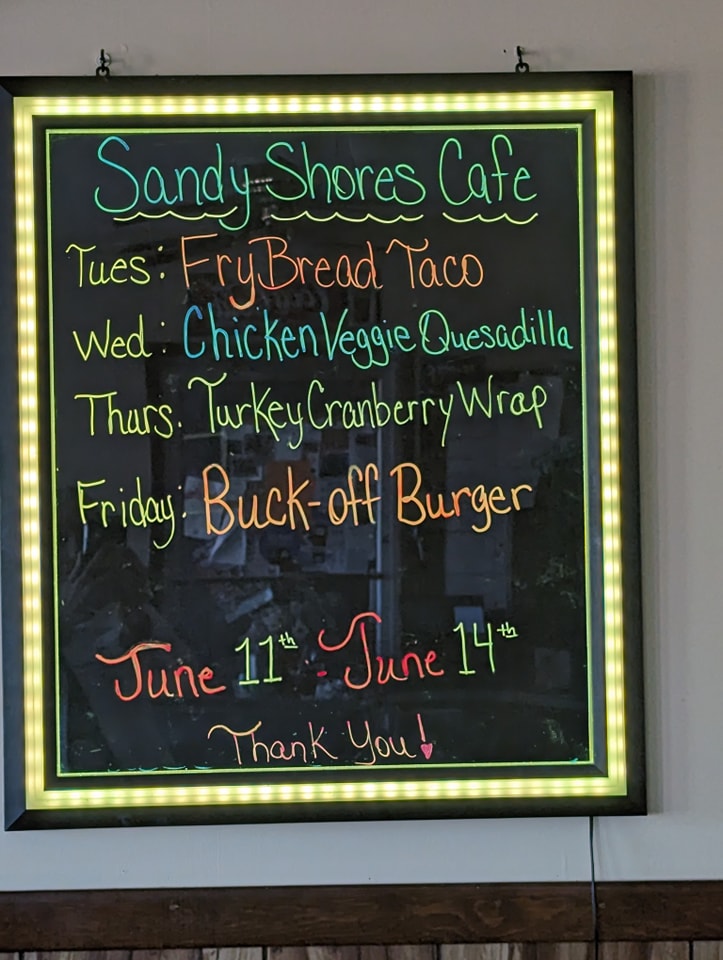 Sandy Shores Cafe
Tues: FryBread Taco
Wed: Chicken Veggie Quesadilla
Thurs. Turkey Cranberry Wrap
Friday: Buck-off Burger
June 11th - June 14th
Thank You!